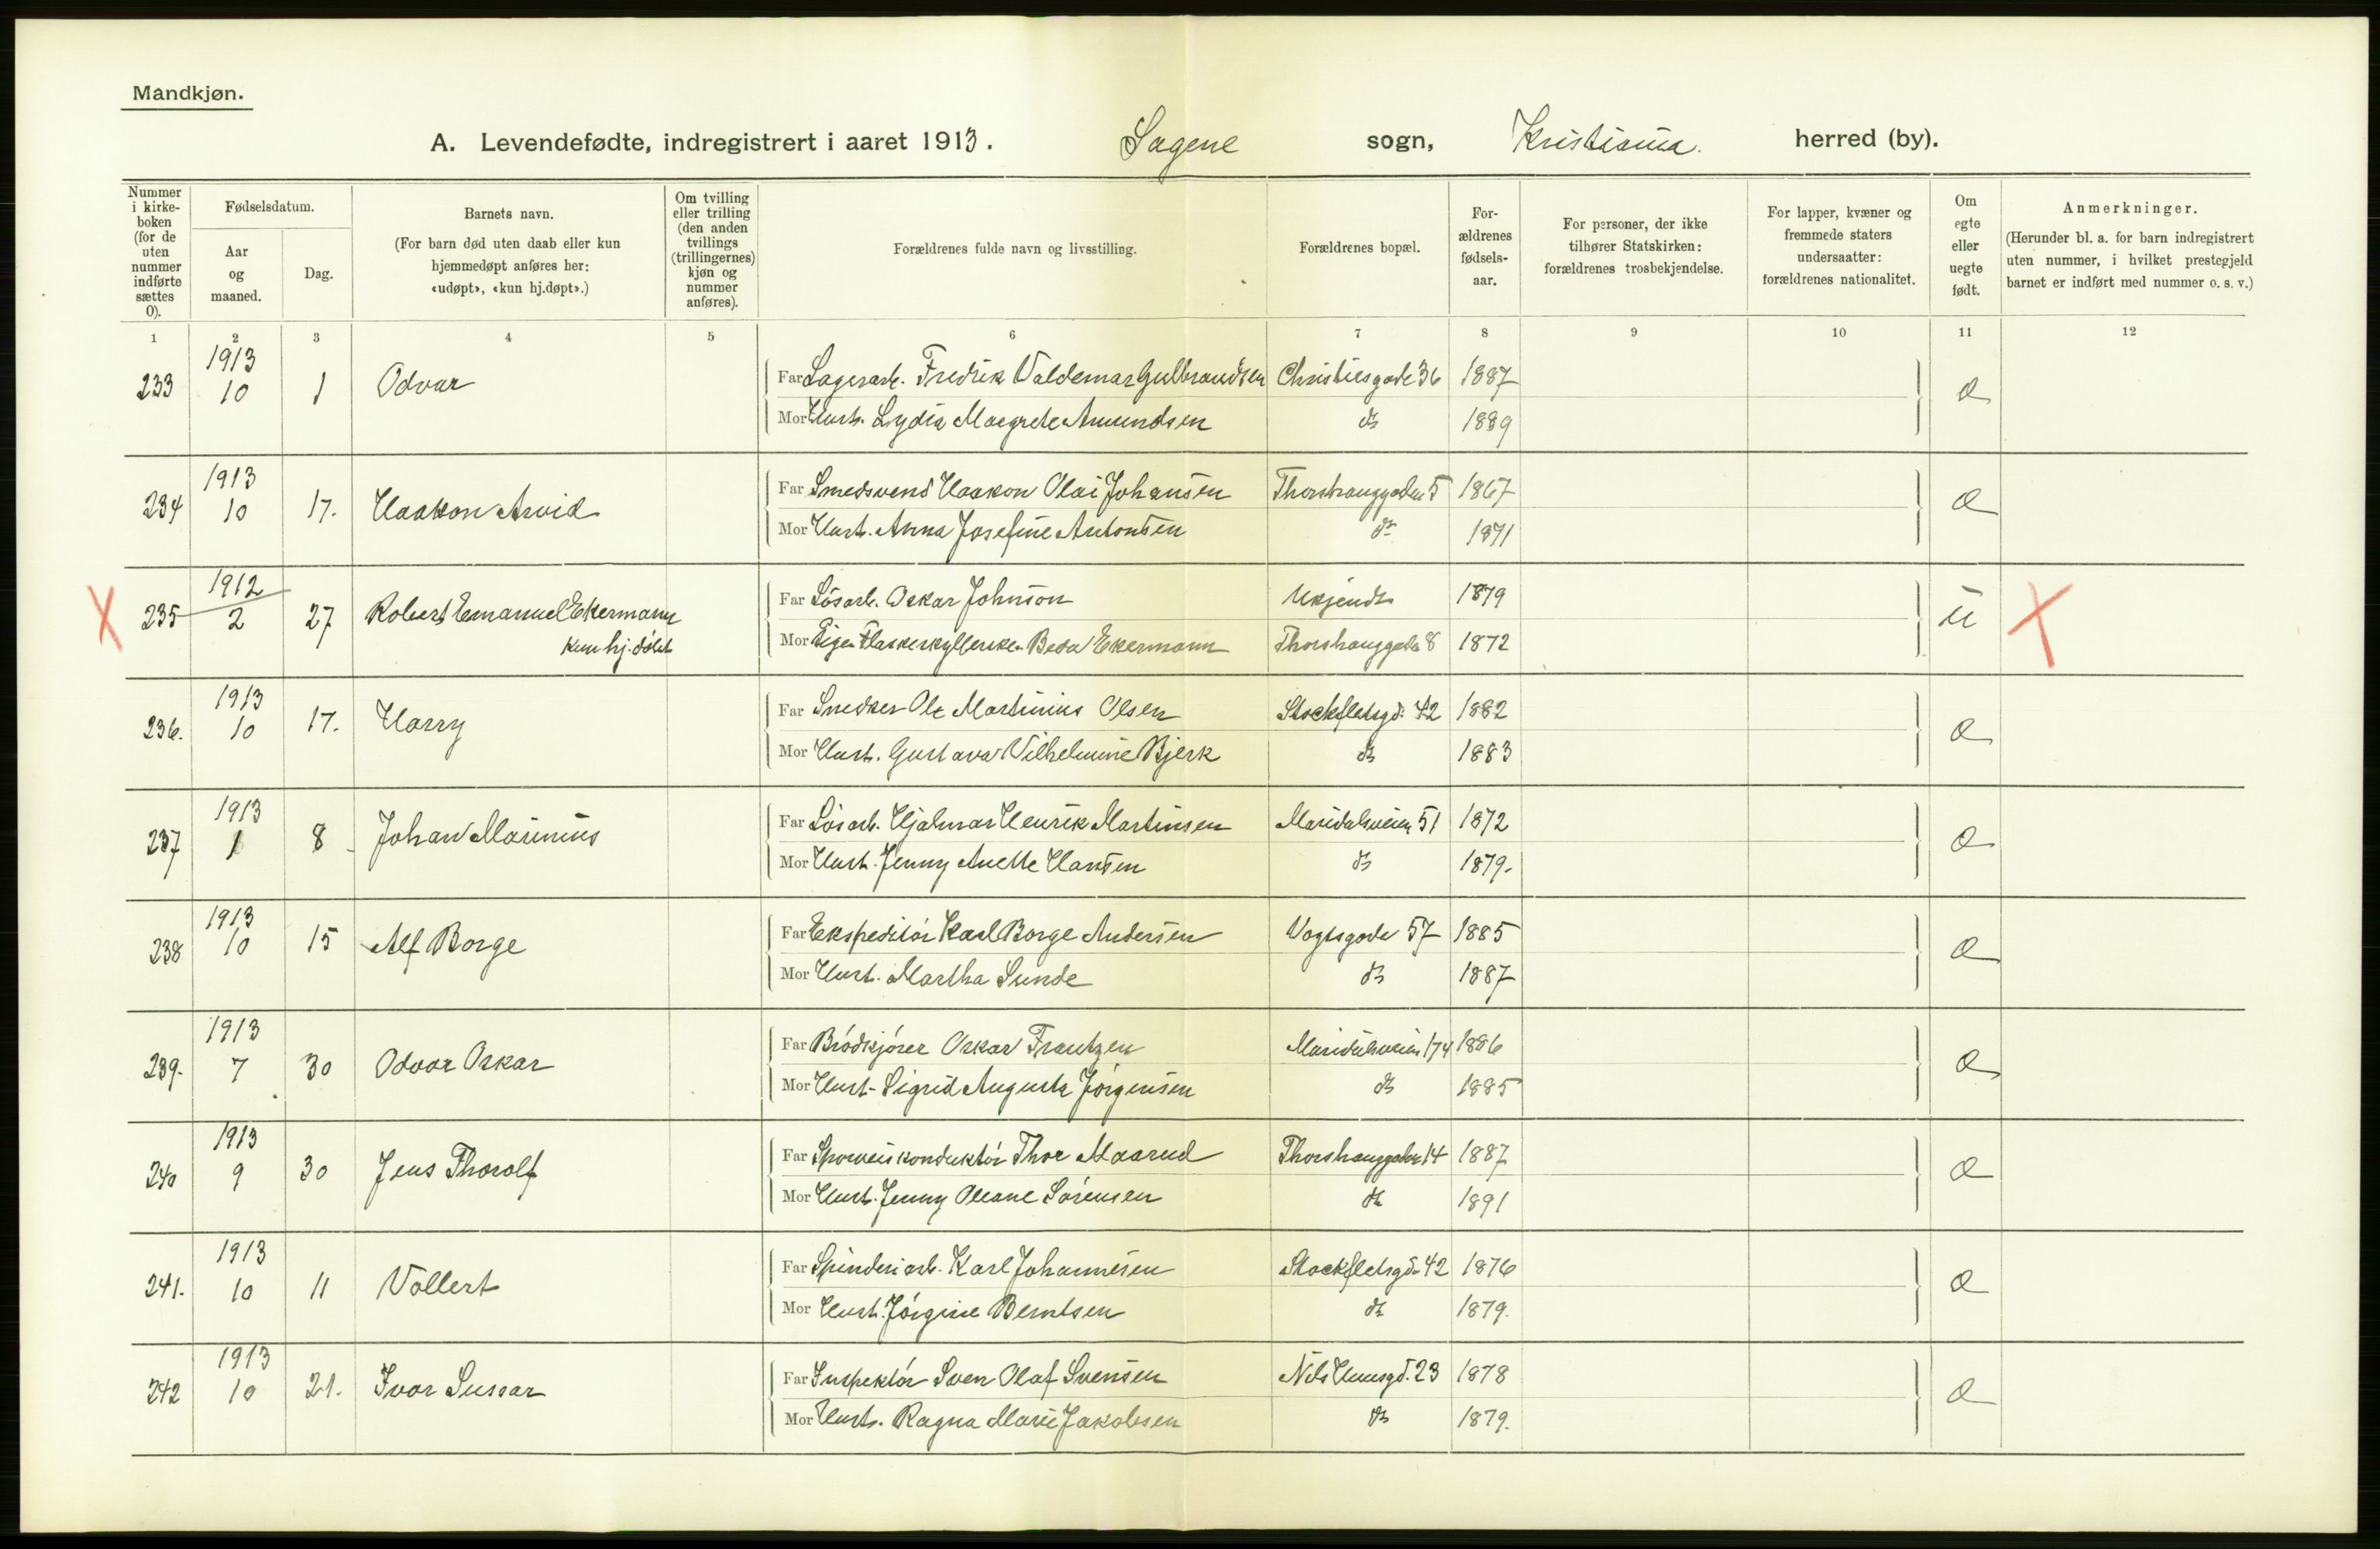 Mandkjøn.
A. Levendefødte, indregistrert i aaret 1913. Sagene sogn, Kristiania herred (by).
Nummer i kirkeboken (for de uten nummer indførte sættes 0).
Fødselsdatum.
Aar og maaned.
Dag.
Barnets navn.
(For barn død uten daab eller kun hjemmedøpt anføres her: «udøpt», «kun hj.døpt».)
Om tvilling eller trilling (den anden tvillings (trillingernes) kjøn og nummer anføres).
Forældrenes fulde navn og livsstilling.
Forældrenes bopæl.
Forældrenes fødselsaar.
For personer, der ikke tilhører Statskirken: forældrenes trosbekjendelse.
For lapper, kvæner og fremmede staters undersaatter: forældrenes nationalitet.
Om egte eller uegte født.
Anmerkninger.
(Herunder bl. a. for barn indregistrert uten nummer, i hvilket prestegjeld barnet er indført med nummer o. s. v.)
1 2 3 4 5 6 7 8 9 10 11 12
1913
233 10 1 Odvar Far Lagerarb. Fredrik Valdemar Gulbrandsen Christiesgade 36 1887 e
Mor Hust. Lydia Margrete Amundsen do 1889
1913
234 10 17. Haakon Arvid Far Smedsvend Haakon Olai Johansen Thorshauggaden 5 1867 e
Mor Hust. Anna Josefine Antonsen do 1871
1912
235 2 27 Robert Emanuel Ekermann Far Løsarb. Oskar Johnson Ukjendt 1879 u
kun hj. døbt Mor Pige Flaskeskyllerske Beda Ekermann Thorshauggade 8 1872
1913
236. 10 17. Harry Far Snedker Ole Martinius Olsen Stockfletsgd. 42 1882 e
Mor Hust. Gustava Vilhelmine Bjerk do 1883
1913
237 1 8 Johan Marinius Far Løsarb. Hjalmar Henrik Martinsen Maridalsveien 51 1872 e
Mor Hust. Jenny Anette Hansen do 1879.
1913
238 10 15 Alf Borge Far Ekspeditør Karl Borge Andersen Vogtsgade 57 1885 e
Mor Hust. Martha Sunde do 1887
1913
239. 7 30 Odvar Oskar Far Brødkjører Oskar Frantzen Maridalsveien 174 1886 e
Mor Hust. Sigrid Augusta Jørgensen do 1885
1913
240 9 30 Jens Thorolf Far Sporveiskonduktør Thor Maarud Thorshauggaden 14 1887 e
Mor Hust. Jenny Oleane Sørensen do 1891
1913
241. 10 11 Vollert Far Spinderiarb. Karl Johannesen Stockfletsgd. 42 1876 e
Mor Hust. Jørgine Berntsen do 1879.
1913
242 10 21. Ivar Sussar Far Inspektør Sven Olaf Svensen Nils Huusgd. 23 1878 e
Mor Hust. Ragna Marie Jakobsen do 1879.